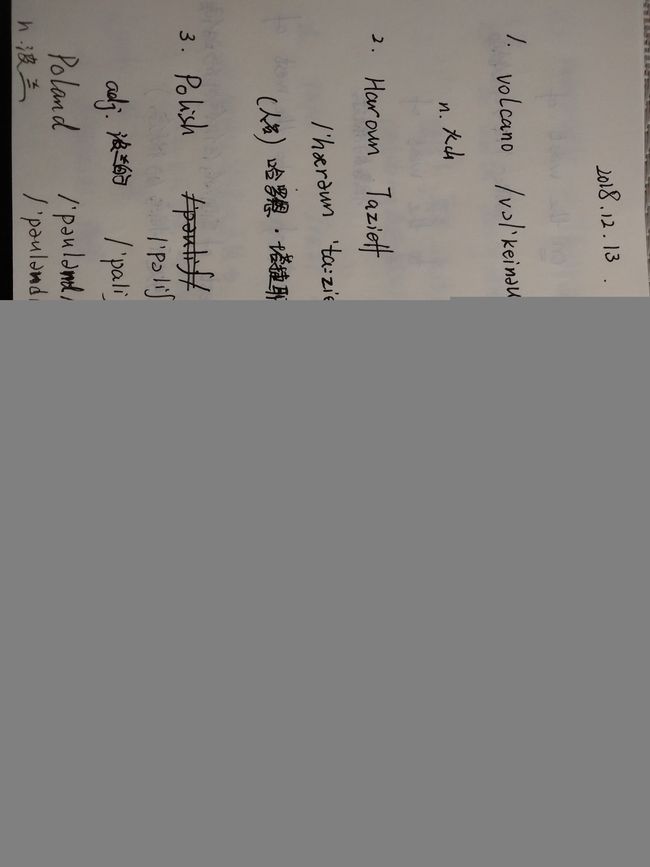 2018.12.13.
1. volcano /vɔl'keinəu
n. 火山
2. Haroun Tazieff
/'hærəun 'ta:zie
(人名) 哈罗恩·塔捷耶
3. Polish /'pəuliʃ/
/'pəliʃ
adj. 波兰的 /'pali
Poland /'pəulənd/
n. 波兰 /'pəulənd/